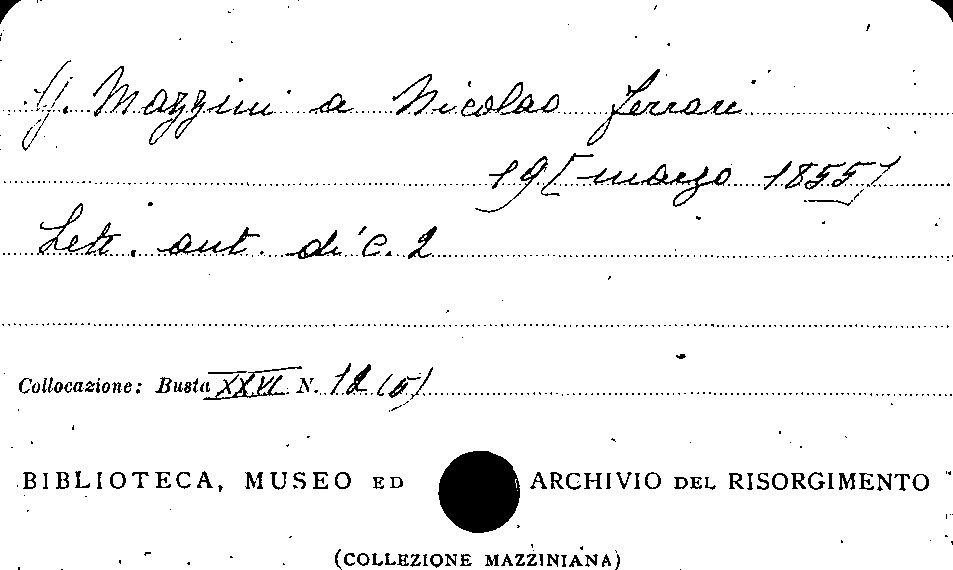 G. Mazzini a Nicolao Ferrari
19 [marzo 1855]
Lett. aut. di c. 2
Collocazione: Busta XXVI N. 12 (5)
BIBLIOTECA, MUSEO ED ARCHIVIO DEL RISORGIMENTO
(COLLEZIONE MAZZINIANA)